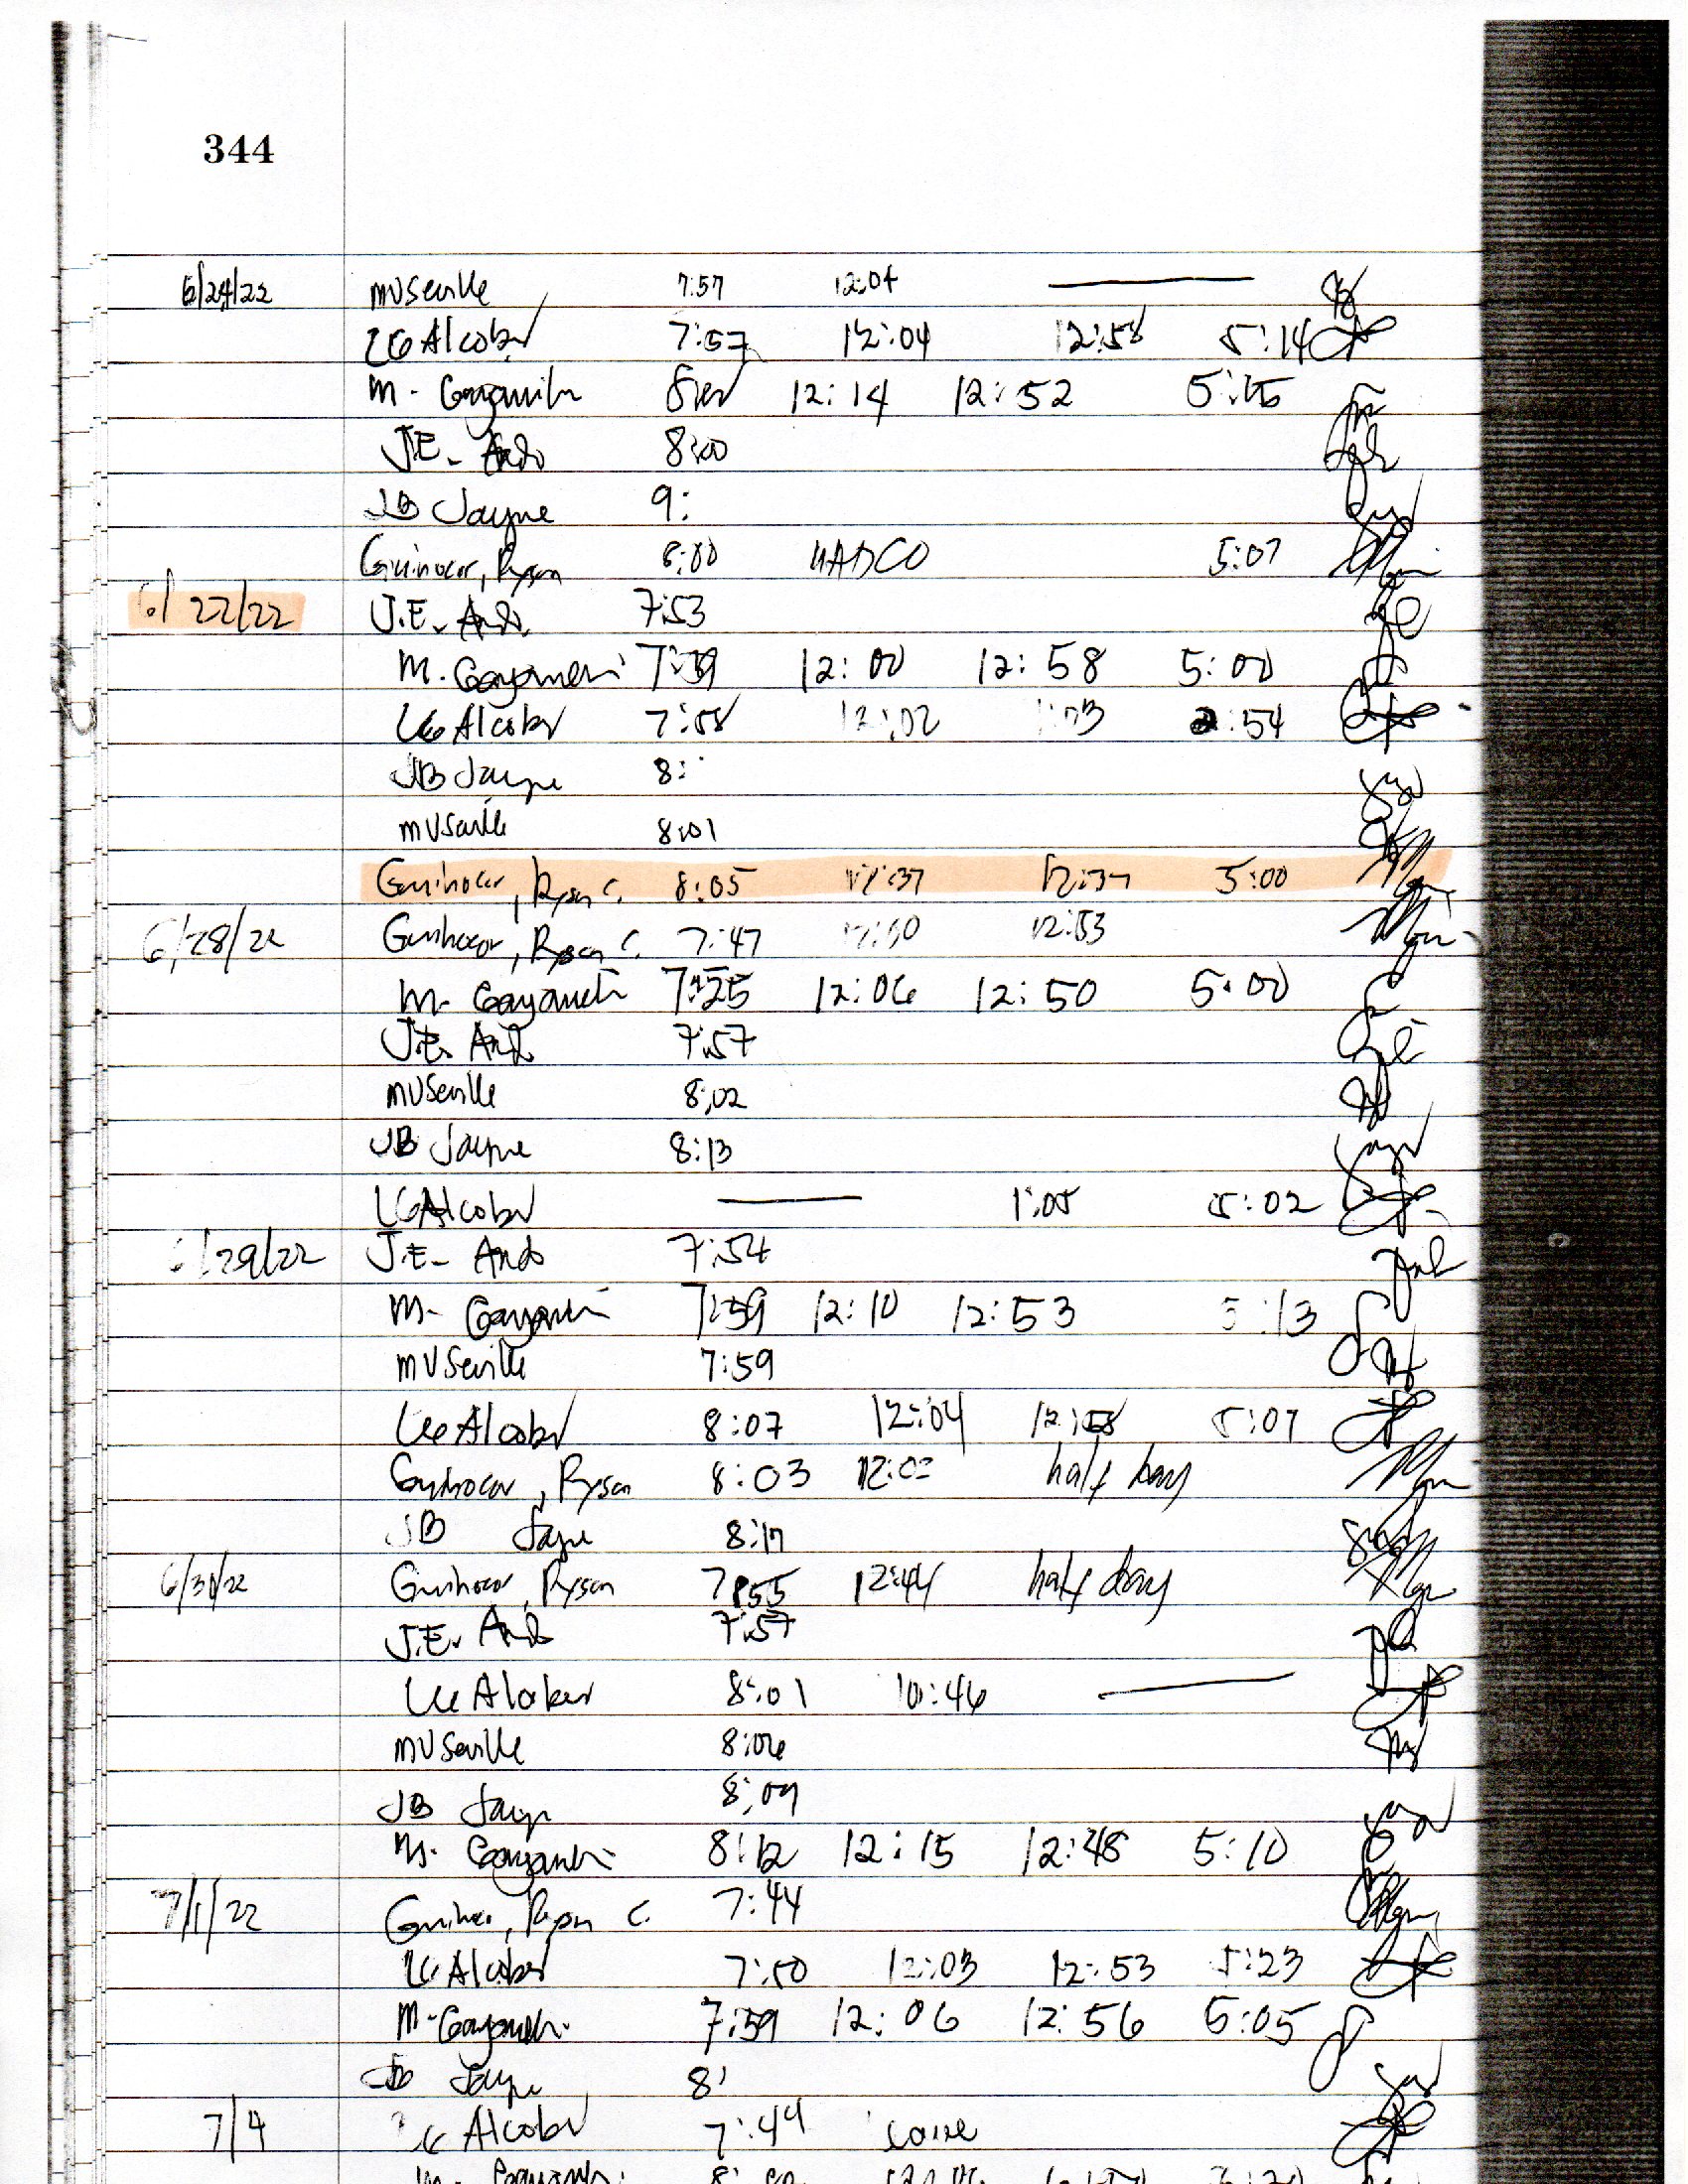 344
6/24/22 MVSeville 7:57 12:04
LG Alcober 7:57 12:04 12:58 5:14
M. 12:14 12:52 5:15
J.E. Ando 8:00
JB Jayne 9:
Guinocor, Ryson 8:00 HADCO 5:07
6/22/22 J.E. Ando 7:53
M. 7:59 12:00 12:58 5:00
LG Alcober 7:58 12:02 1:03 2:54
JB Jayne 8:
MVSeville 8:01
Guinocor, Ryson C. 8:05 12:37 12:37 5:00
6/28/22 Guinocor, Ryson C. 7:47 12:53
M. 7:25 12:06 12:50 5:00
J.E. Ando 7:57
MVSeville 8:02
JB Jayne 8:13
LG Alcober 1:05 5:02
6/29/22 J.E. Ando 7:54
M. 7:59 12:10 12:53 5:13
MVSeville 7:59
LG Alcober 8:07 12:04 12:58 5:07
Guinocor, Ryson 8:03 12:02 half day
JB Jayne 8:17
6/30/22 Guinocor, Ryson 7:55 12:44 half day
J.E. Ando 7:57
LG Alcober 8:01 10:46
MVSeville 8:06
JB Jayne 8:09
M. 8:12 12:15 12:48 5:10
7/1/22 Guinocor, Ryson C. 7:44
LG Alcober 7:50 12:03 12:53 5:23
M. 7:59 12:06 12:56 5:05
JB Jayne 8:
7/4 LG Alcober 7:49